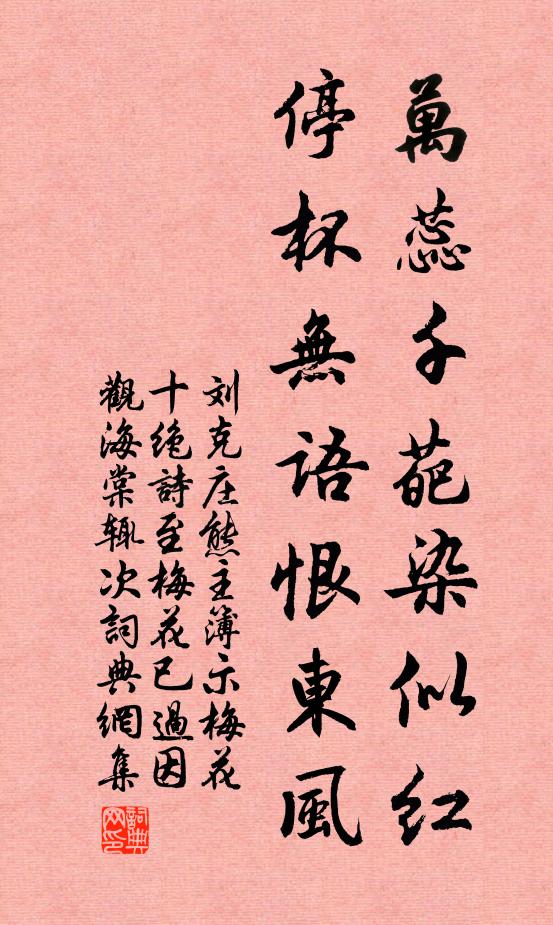 萬蕊千葩染似紅
停杯無語恨東風
刘克庄熊主簿示梅花
十绝詩至梅花已過因
觀海棠辄次詞典網集
詞典
网印